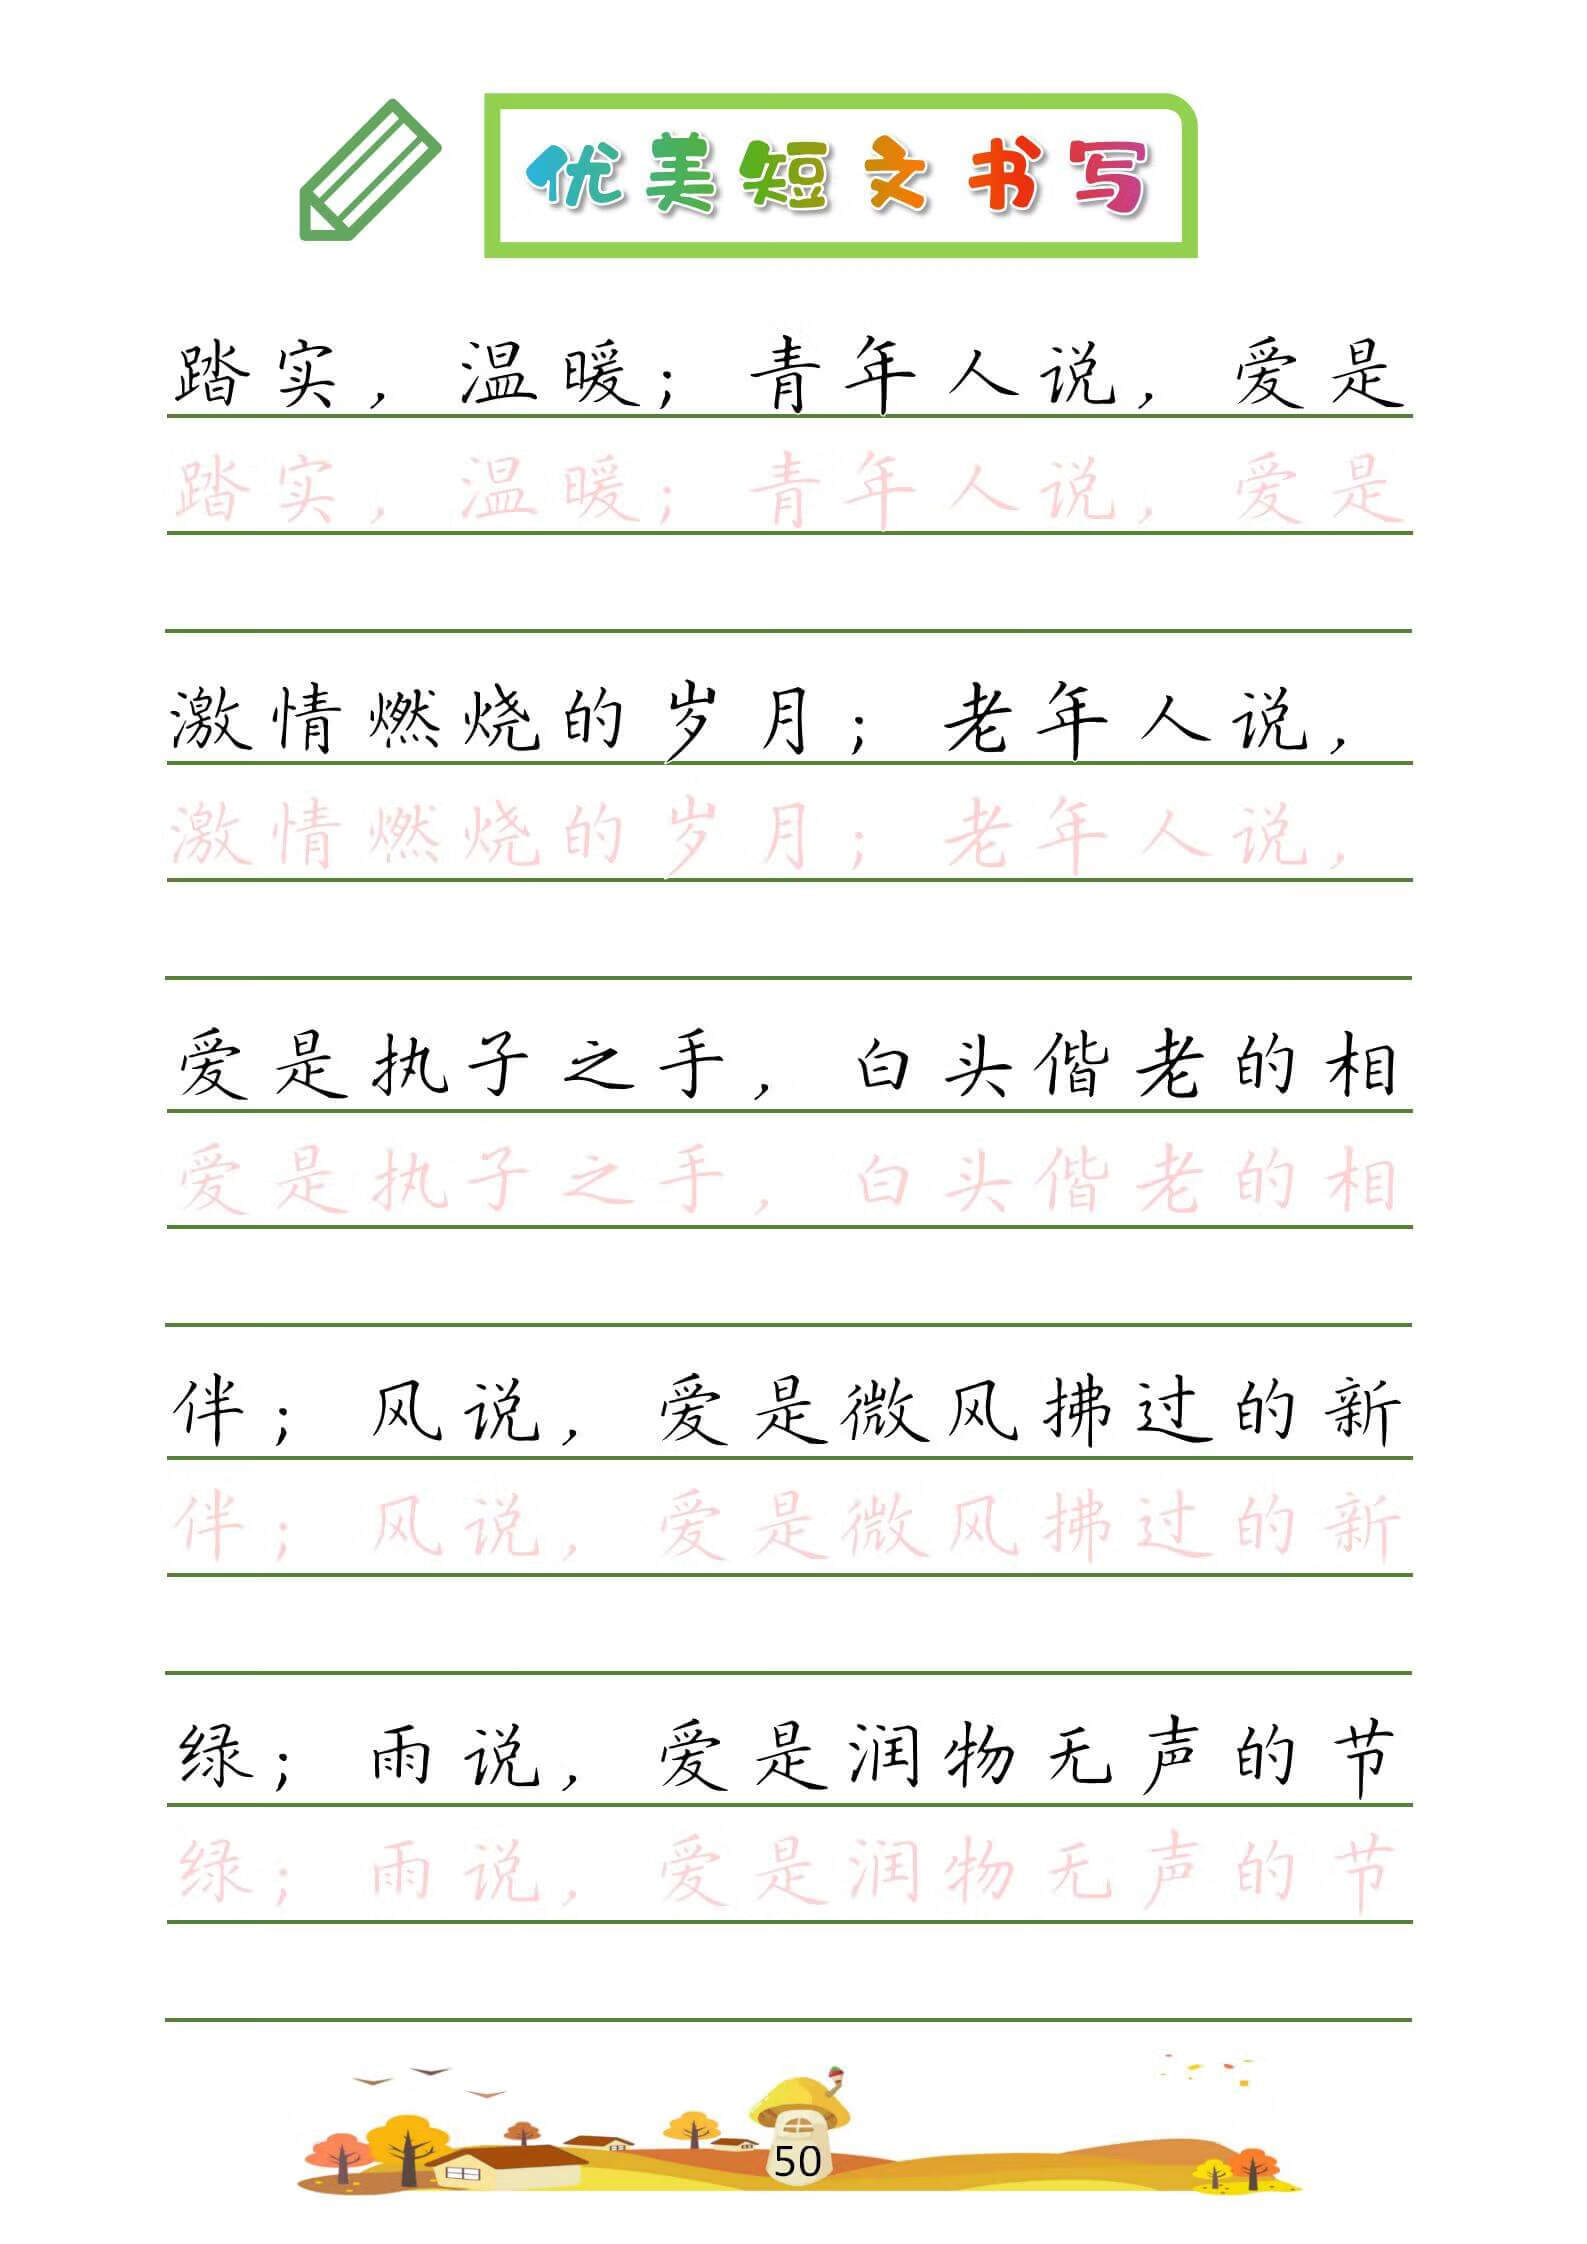 优美短文书写
踏实，温暖；青年人说，爱是
踏实，温暖；青年人说，爱是
激情燃烧的岁月；老年人说，
激情燃烧的岁月；老年人说，
爱是执子之手，白头偕老的相
爱是执子之手，白头偕老的相
伴；风说，爱是微风拂过的新
伴；风说，爱是微风拂过的新
绿；雨说，爱是润物无声的节
绿；雨说，爱是润物无声的节
50